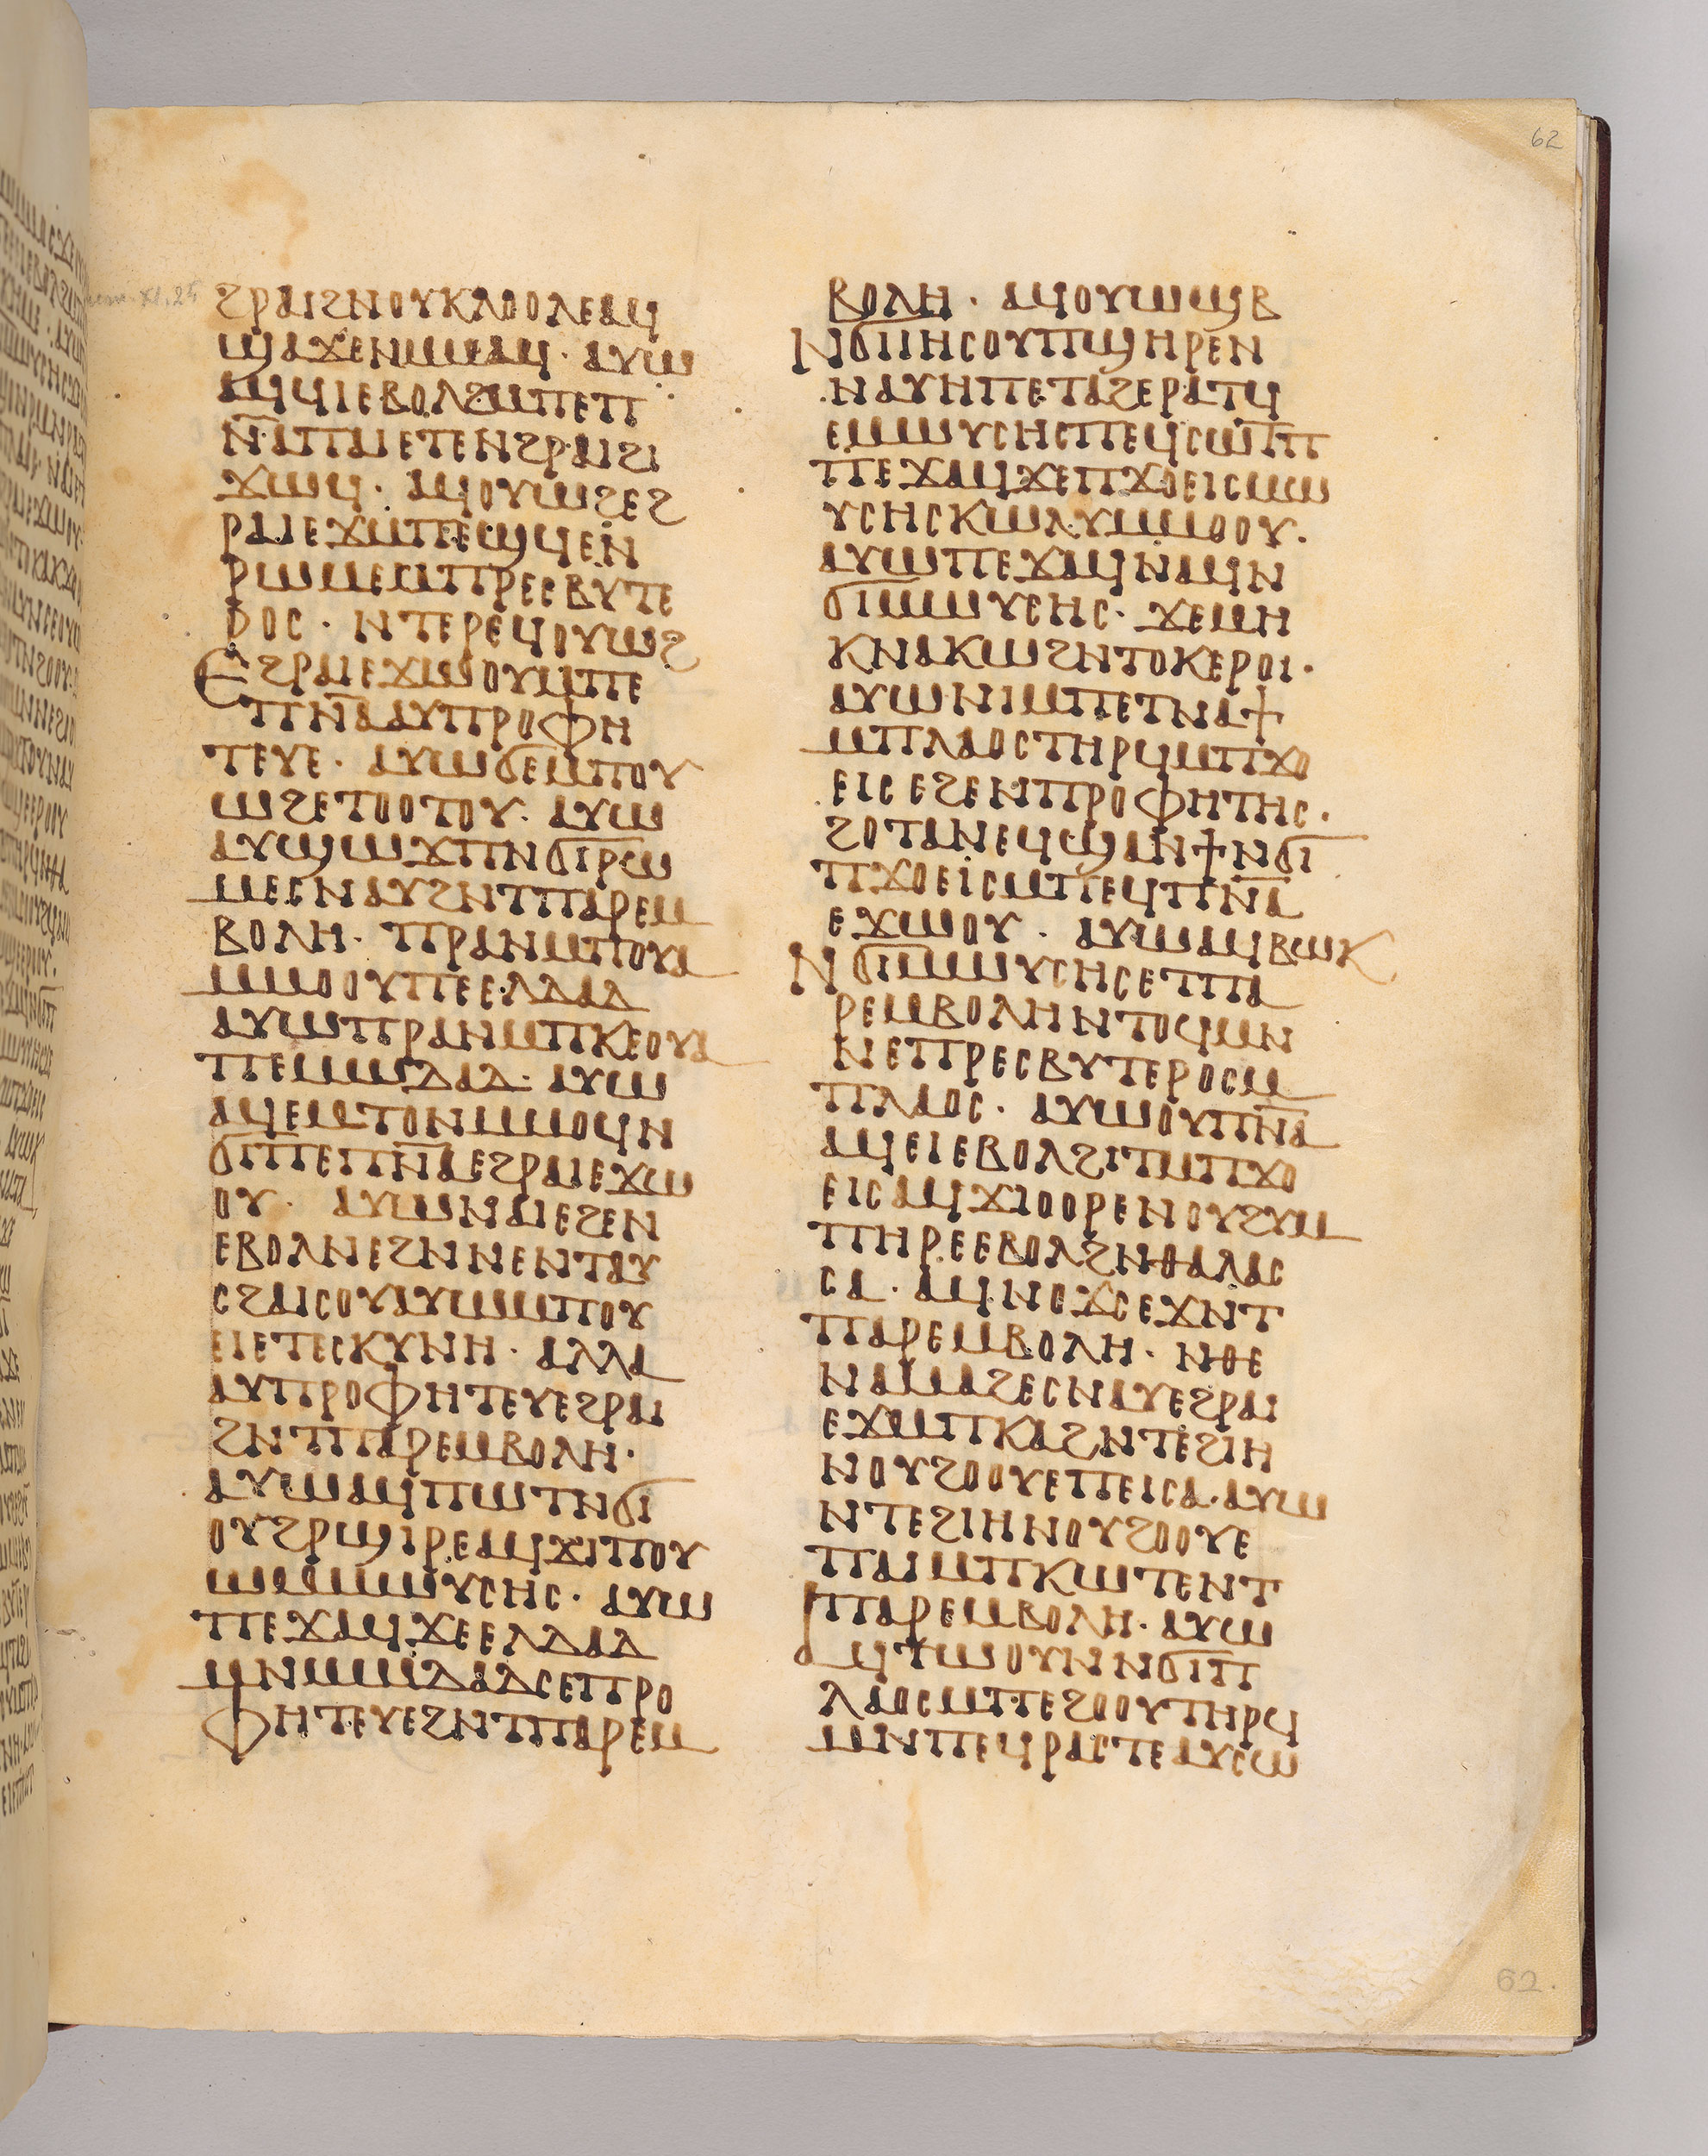 ϩⲣⲁⲓϩⲛⲟⲩⲕⲗⲟⲟⲗⲉⲁϥ
ϣⲁϫⲉⲛⲙⲙⲁϥ· ⲁⲩⲱ
ⲁϥϥⲓⲉⲃⲟⲗϩⲙⲡⲉⲡ
ⲛ̅ⲁⲡⲁⲓⲉⲧⲉⲛϩⲣⲁⲓϩⲓ
ϫⲱϥ· ⲁϥⲟⲩⲱϩⲉϩ
ⲣⲁⲓⲉϫⲙⲡⲉϣϥⲉⲛ
ⲣⲱⲙⲉⲙⲡⲣⲉⲥⲃⲩⲧⲉ
ⲣⲟⲥ· ⲛⲧⲉⲣⲉϥⲟⲩⲱϩ
ⲉϩⲣⲁⲓⲉϫⲱⲟⲩⲙⲡⲉ
ⲡⲛ̅ⲁⲁⲩⲡⲣⲟⲫⲏ
ⲧⲉⲩⲉ· ⲁⲩⲱϭⲉⲙⲡⲟⲩ
ⲱϩⲉⲧⲟⲟⲧⲟⲩ· ⲁⲩⲱ
ⲁⲩϣⲱϫⲡⲛϭⲓⲣⲱ
ⲙⲉⲥⲛⲁⲩϩⲛⲧⲡⲁⲣⲉⲙ
ⲃⲟⲗⲏ· ⲡⲣⲁⲛⲙⲡⲟⲩⲁ
ⲙⲙⲟⲟⲩⲡⲉⲉⲗⲇⲁⲇ
ⲁⲩⲱⲡⲣⲁⲛⲙⲡⲕⲉⲟⲩⲁ
ⲡⲉⲙⲱⲇⲁⲇ· ⲁⲩⲱ
ⲁϥⲉⲙⲧⲟⲛⲙⲙⲟϥⲛ
ϭⲓⲡⲉⲡⲛ̅ⲁⲉϩⲣⲁⲓⲉϫⲱ
ⲟⲩ· ⲁⲩⲱⲛⲁⲓⲉϩⲉⲛ
ⲉⲃⲟⲗⲛⲉϩⲛⲛⲉⲛⲧⲁⲩ
ⲥϩⲁⲓⲥⲟⲩⲁⲩⲱⲙⲡⲟⲩ
ⲉⲓⲉⲧⲉⲥⲕⲩⲛⲏ· ⲁⲗⲗⲁ
ⲁⲩⲡⲣⲟⲫⲏⲧⲉⲩⲉϩⲣⲁⲓ
ϩⲛⲧⲡⲁⲣⲉⲙⲃⲟⲗⲏ·
ⲁⲩⲱⲁϥⲡⲱⲧⲛϭⲓ
ⲟⲩϩⲣϣⲓⲣⲉⲁϥϫⲓⲡⲟⲩ
ⲱⲙⲙⲱⲩⲥⲏⲥ· ⲁⲩⲱ
ⲡⲉϫⲁϥϫⲉⲉⲗⲇⲁⲇ
ⲙⲛⲙⲱⲇⲁⲇⲥⲉⲡⲣⲟ
ⲫⲏⲧⲉⲩⲉϩⲛⲧⲡⲁⲣⲉⲙ
ⲃⲟⲗⲏ· ⲁϥⲟⲩⲱϣⲃ
ⲛϭⲓⲓⲏⲥⲟⲩⲡϣⲏⲣⲉⲛ
ⲛⲁⲩⲏⲡⲉⲧⲁϩⲉⲣⲁⲧϥ
ⲉⲙⲱⲩⲥⲏⲥⲡⲉϥⲥⲱⲧⲡ
ⲡⲉϫⲁϥϫⲉⲡϫⲟⲉⲓⲥⲙⲱ
ⲩⲥⲏⲥⲕⲱⲗⲩⲙⲙⲟⲟⲩ·
ⲁⲩⲱⲡⲉϫⲁϥⲛⲁϥⲛ
ϭⲓⲙⲱⲩⲥⲏⲥ· ϫⲉⲙⲏ
ⲕⲛⲁⲕⲱϩⲛⲧⲟⲕⲉⲣⲟⲓ·
ⲁⲩⲱⲛⲓⲙⲡⲉⲧⲛⲁϯ
ⲙⲡⲗⲁⲟⲥⲧⲏⲣϥⲙⲡϫⲟ
ⲉⲓⲥⲉϩⲉⲛⲡⲣⲟⲫⲏⲧⲏⲥ·
ϩⲟⲧⲁⲛⲉϥϣⲁⲛϯⲛϭⲓ
ⲡϫⲟⲉⲓⲥⲙⲡⲉϥⲡⲛ̅ⲁ
ⲉϫⲱⲟⲩ· ⲁⲩⲱⲁϥⲃⲱⲕ
ⲛϭⲓⲙⲱⲩⲥⲏⲥⲉⲧⲡⲁ
ⲣⲉⲙⲃⲟⲗⲏⲛⲧⲟϥⲙⲛ
ⲛⲉⲡⲣⲉⲥⲃⲩⲧⲉⲣⲟⲥⲙ
ⲡⲗⲁⲟⲥ· ⲁⲩⲱⲟⲩⲡⲛ̅ⲁ
ⲁϥⲉⲓⲉⲃⲟⲗϩⲓⲧⲙⲡϫⲟ
ⲉⲓⲥⲁϥϫⲓⲟⲟⲣⲉⲛⲟⲩϩⲩⲙ
ⲡⲏⲣⲉⲉⲃⲟⲗϩⲛⲑⲁⲗⲁⲥ
ⲥⲁ· ⲁϥⲛⲟϫⲥⲉϫⲛⲧ
ⲡⲁⲣⲉⲙⲃⲟⲗⲏ· ⲛⲑⲉ
ⲛⲁⲙⲁϩⲉⲥⲛⲁⲩⲉϩⲣⲁⲓ
ⲉϫⲙⲡⲕⲁϩⲛⲧⲉϩⲓⲏ
ⲛⲟⲩϩⲟⲟⲩⲉⲡⲉⲓⲥⲁ· ⲁⲩⲱ
ⲛⲧⲉϩⲓⲏⲛⲟⲩϩⲟⲟⲩⲉ
ⲡⲁⲓⲙⲡⲕⲱⲧⲉⲛⲧ
ⲡⲁⲣⲉⲙⲃⲟⲗⲏ· ⲁⲩⲱ
ⲁϥⲧⲱⲟⲩⲛⲛϭⲓⲡ
ⲗⲁⲟⲥⲙⲡⲉϩⲟⲟⲩⲧⲏⲣϥ
ⲙⲛⲡⲉϥⲣⲁⲥⲧⲉⲁⲩⲥⲱ
62
62.